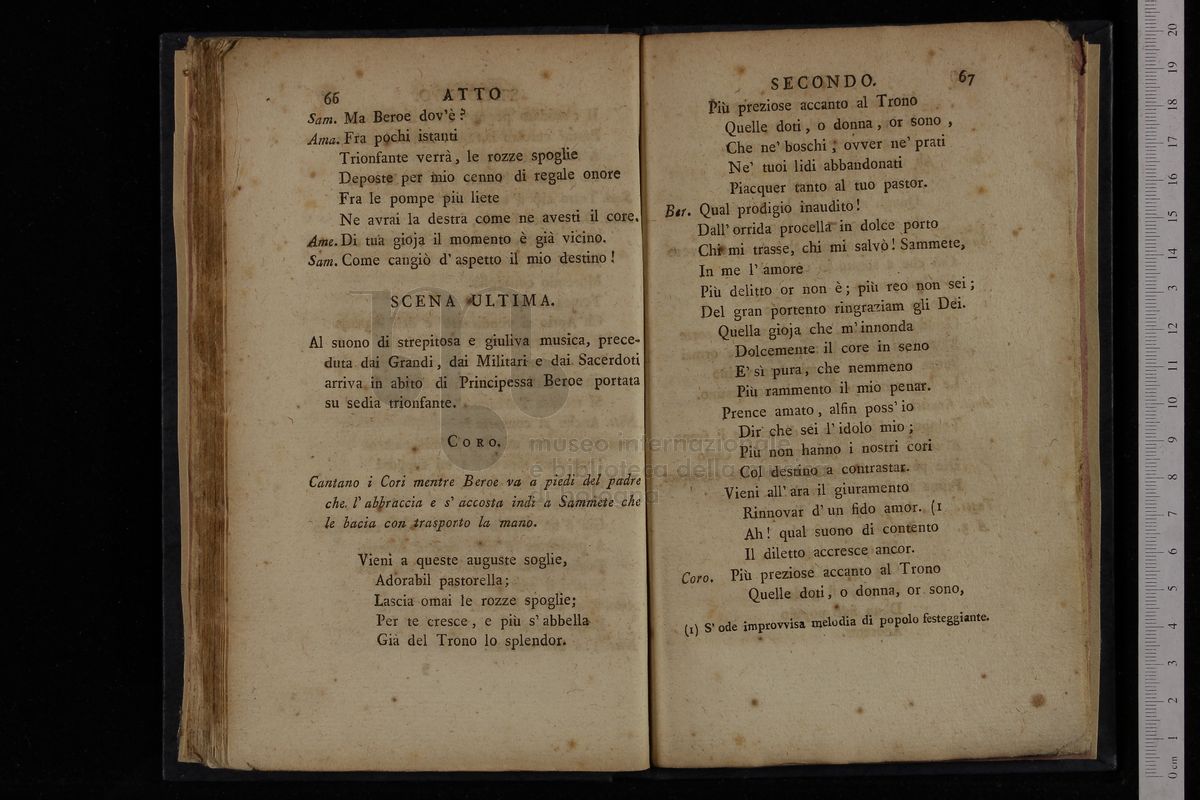 66 ATTO
Sam. Ma Beroe dov'è?
Ama. Fra pochi istanti
Trionfante verrà, le rozze spoglie
Deposte per mio cenno di regale onore
Fra le pompe più liete
Ne avrai la destra come ne avesti il core.
Ame. Di tua gioja il momento è già vicino.
Sam. Come cangiò d'aspetto il mio destino!
SCENA ULTIMA.
Al suono di strepitosa e giuliva musica, prece-
duta dai Grandi, dai Militari e dai Sacerdoti
arriva in abito di Principessa Beroe portata
su sedia trionfante.
CORO.
Cantano i Cori mentre Beroe va a piedi del padre
che l'abbraccia e s'accosta indi a Sammete che
le bacia con trasporto la mano.
Vieni a queste auguste soglie,
Adorabil pastorella;
Lascia omai le rozze spoglie;
Per te cresce, e più s'abbella
Già del Trono lo splendor.
SECONDO. 67
Più preziose accanto al Trono
Quelle doti, o donna, or sono,
Che ne' boschi, ovver ne' prati
Ne' tuoi lidi abbandonati
Piacquer tanto al tuo pastor.
Ber. Qual prodigio inaudito!
Dall'orrida procella in dolce porto
Chi mi trasse, chi mi salvò! Sammete,
In me l'amore
Più delitto or non è; più reo non sei;
Del gran portento ringraziam gli Dei.
Quella gioja che m'innonda
Dolcemente il core in seno
E' sì pura, che nemmeno
Più rammento il mio penar.
Prence amato, alfin poss'io
Dir che sei l'idolo mio;
Più non hanno i nostri cori
Col destino a contrastar.
Vieni all'ara il giuramento
Rinnovar d'un fido amor. (1
Ah! qual suono di contento
Il diletto accresce ancor.
Coro. Più preziose accanto al Trono
Quelle doti, o donna, or sono,
(1) S'ode improvvisa melodia di popolo festeggiante.
museo internazionale
e biblioteca della
di bologna
0 cm 1 2 3 4 5 6 7 8 9 10 11 12 13 14 15 16 17 18 19 20